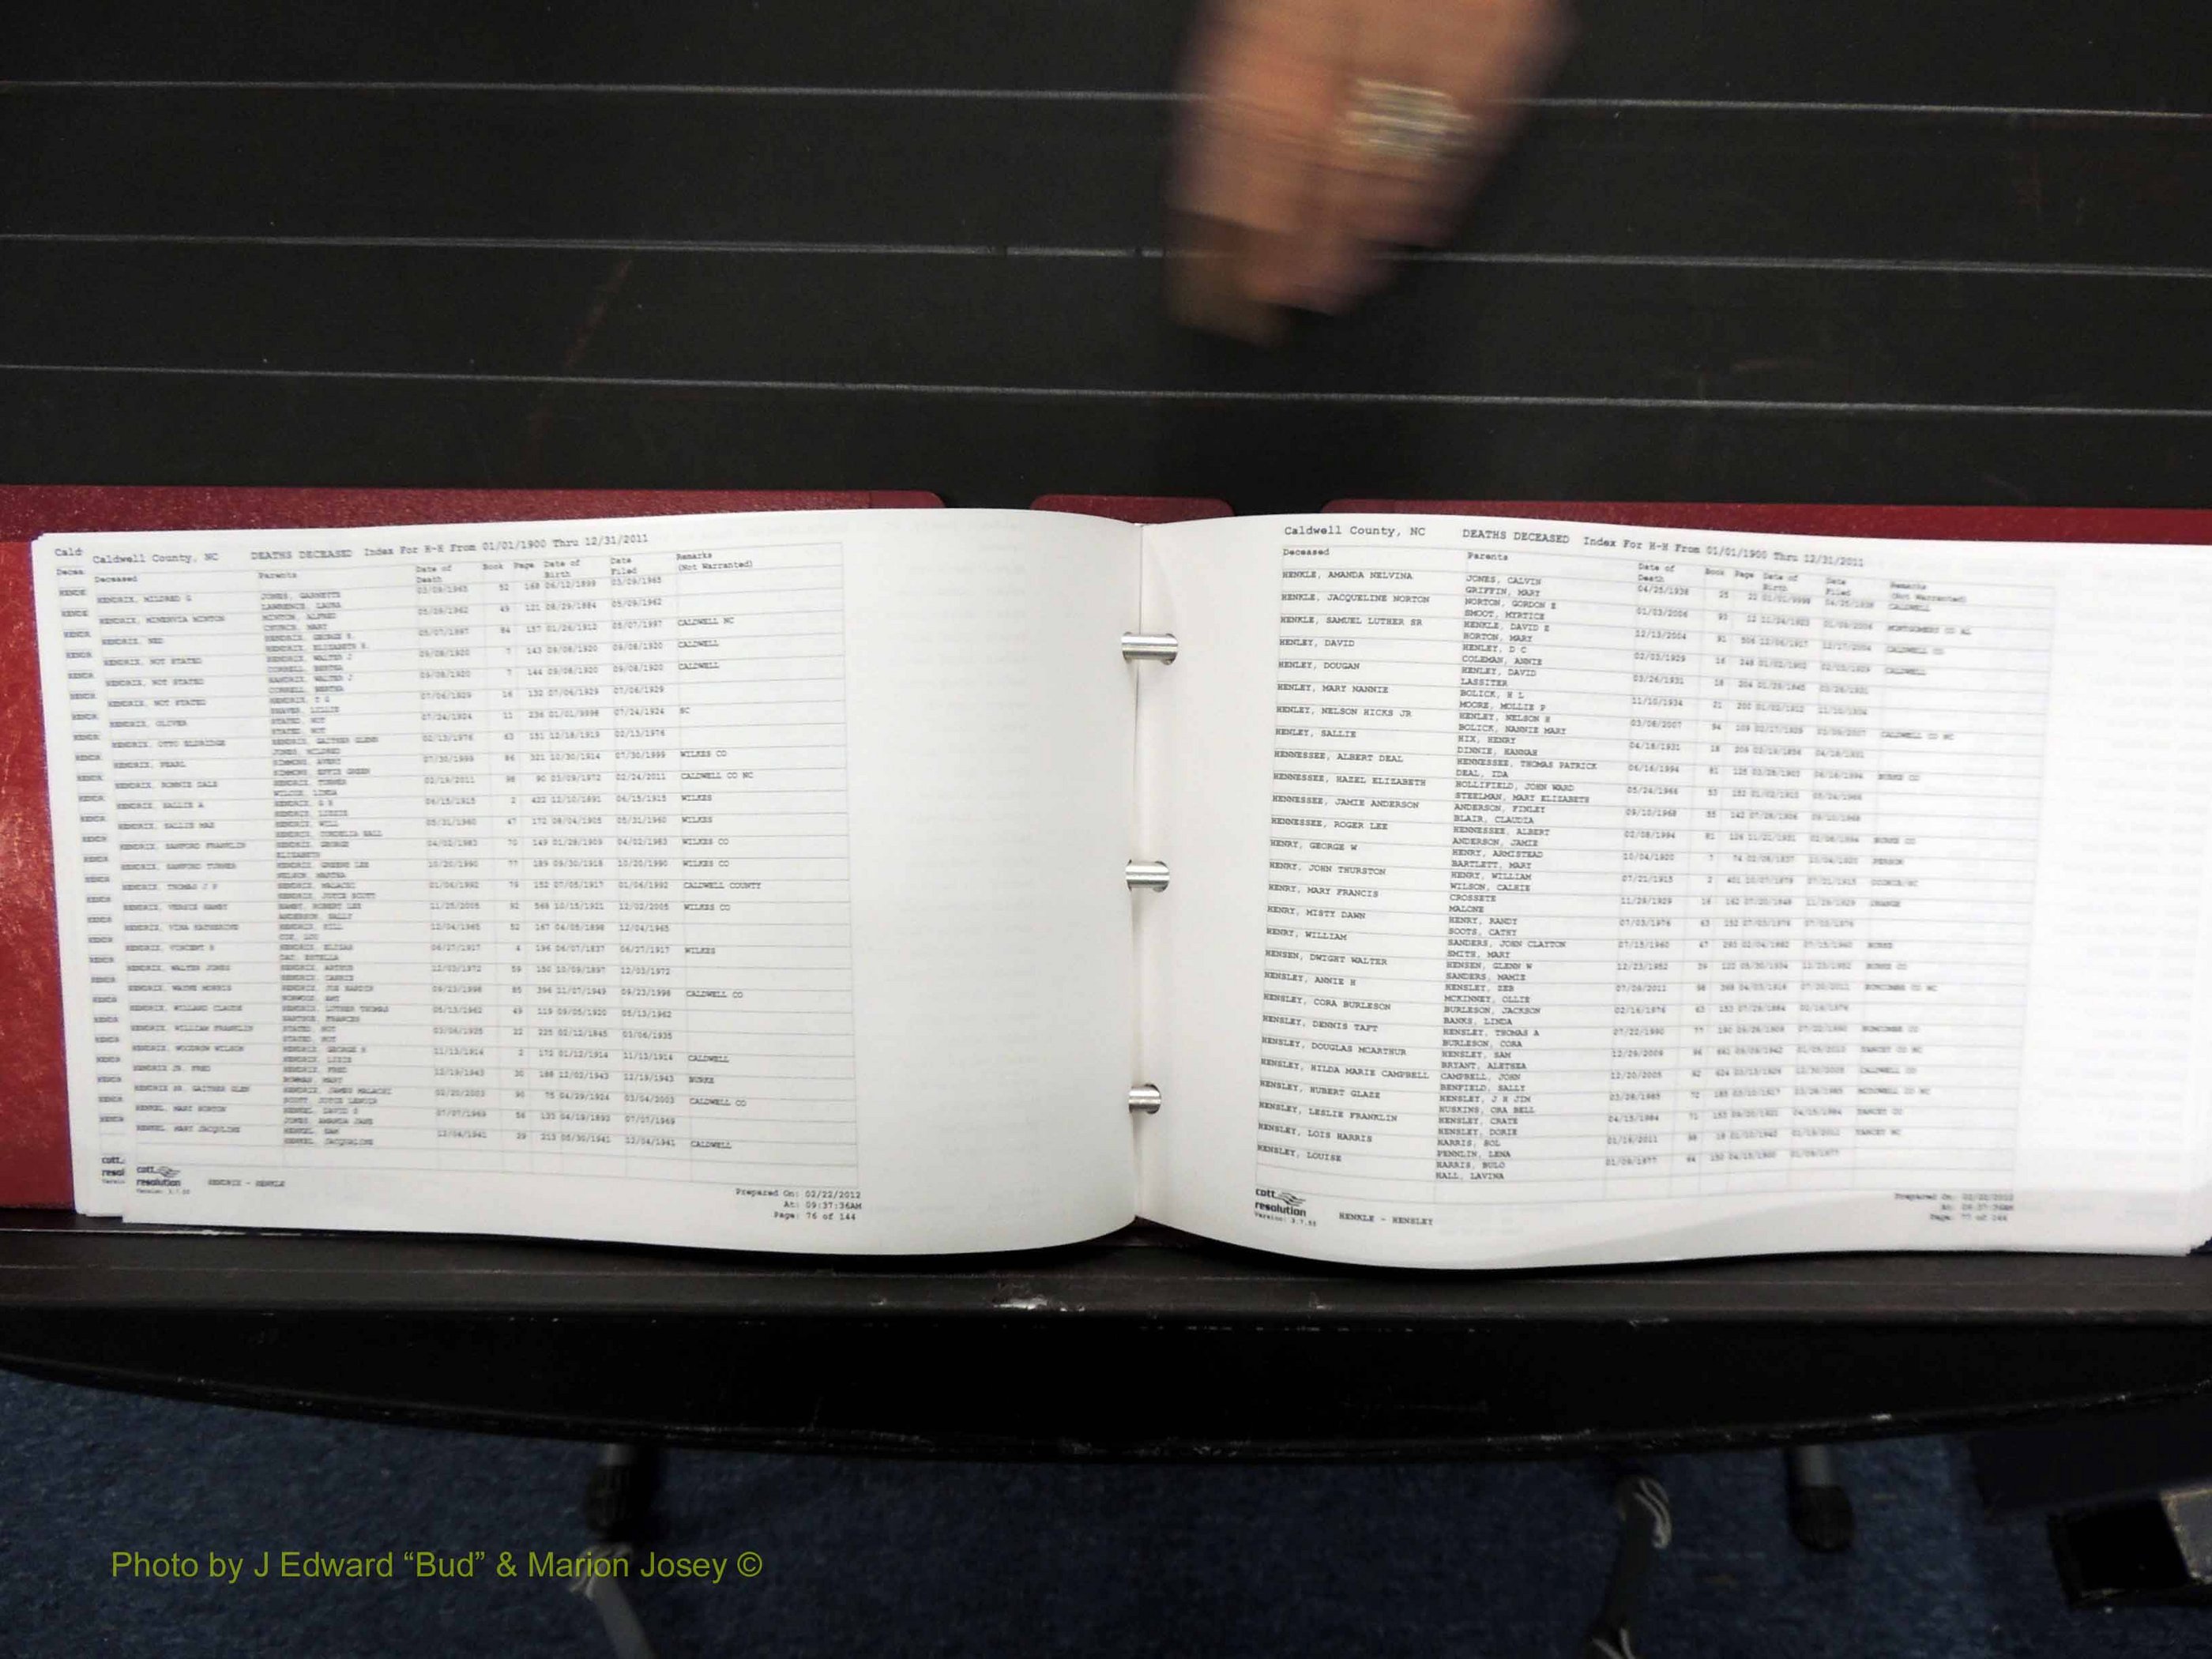 Cald
Caldwell County, NC DEATHS DECEASED Index For H-H From 01/01/1900 Thru 12/31/2011
Deceased Parents Date of Death Book Page Date of Birth Date Filed Remarks (Not Warranted)
HENDRIX, MILDRED G JONES, GARNETTE 03/09/1965 52 168 06/12/1899 03/09/1965
LAWRENCE, LAURA
HENDRIX, MINERVIA MINTON MINTON, ALFRED 05/09/1962 49 121 08/29/1884 05/09/1962
CHURCH, MARY
HENDRIX, NED HENDRIX, GEORGE 05/07/1997 84 157 01/26/1912 05/07/1997 CALDWELL NC
HENDRIX, ELIZABETH
HENDRIX, NOT STATED HENDRIX, WALTER J 09/08/1920 7 143 09/08/1920 09/08/1920 CALDWELL
CORRELL, BERTHA
HENDRIX, NOT STATED HENDRIX, WALTER J 09/08/1920 7 144 09/08/1920 09/08/1920 CALDWELL
CORRELL, BERTHA
HENDRIX, NOT STATED 07/06/1929 16 132 07/06/1929 07/06/1929
HENDRIX, OLIVER STATED, NOT 07/24/1924 11 236 01/01/9999 07/24/1924 SC
STATED, NOT
HENDRIX, OTTO ELDRIDGE HENDRIX, GAITHER GLENN 02/13/1976 63 151 12/18/1919 02/13/1976
JONES, MILDRED
HENDRIX, PEARL 07/30/1999 86 321 10/30/1914 07/30/1999 WILKES CO
HENDRIX, RONNIE DALE HENDRIX, TURNER 02/19/2011 98 90 03/09/1972 02/24/2011 CALDWELL CO NC
WILCOX, LINDA
HENDRIX, SALLIE A 06/15/1915 2 422 12/10/1891 06/15/1915 WILKES
HENDRIX, SALLIE MAE HENDRIX, WILL 05/31/1960 47 172 08/04/1905 05/31/1960 WILKES
HENDRIX, SANFORD FRANKLIN HENDRIX, GEORGE 04/02/1983 70 149 01/29/1909 04/02/1983 WILKES CO
ELIZABETH
HENDRIX, SANFORD TURNER HENDRIX, GREENE LEE 10/20/1990 77 189 09/30/1918 10/20/1990 WILKES CO
NELSON, MARTHA
HENDRIX, THOMAS J P HENDRIX, MALACHI 01/06/1992 79 152 07/05/1917 01/06/1992 CALDWELL COUNTY
HENDRIX, JOYCE SCOTT
HENDRIX, VERGIE HAMBY HAMBY, ROBERT LEE 11/25/2005 92 568 10/15/1921 12/02/2005 WILKES CO
ANDERSON, SALLY
HENDRIX, VINA KATHERINE 12/04/1965 52 167 04/05/1898 12/04/1965
COX, LOU
HENDRIX, VINCENT 06/27/1917 4 196 06/07/1837 06/27/1917 WILKES
DAY, ESTELLA
HENDRIX, WALTER JONES HENDRIX, ARTHUR 12/03/1972 59 150 10/09/1897 12/03/1972
HENDRIX, CARRIE
HENDRIX, WAYNE MORRIS HENDRIX, JOE HARDIN 09/23/1998 85 396 11/07/1949 09/23/1998 CALDWELL CO
NORWOOD, AMY
HENDRIX, WILLARD CLAUDE HENDRIX, LUTHER THOMAS 05/13/1962 49 119 09/05/1920 05/13/1962
HENDRIX, WILLIAM FRANKLIN STATED, NOT 22 225 02/12/1845 03/06/1935
STATED, NOT
HENDRIX, WOODROW WILSON HENDRIX, GEORGE 11/13/1914 2 172 01/12/1914 11/13/1914 CALDWELL
HENDRIX JR, FRED HENDRIX, FRED 12/19/1943 30 188 12/02/1943 12/19/1943 BURKE
BOWMAN, MARY
HENDRIX SR, GAITHER GLEN HENDRIX, JAMES MALACHI 02/20/2003 90 75 04/29/1924 03/04/2003 CALDWELL CO
SCOTT, JOYCE LENOIR
HENKEL, MARY NORTON HENKEL, DAVID 07/07/1969 56 132 04/19/1893 07/07/1969
JONES, AMANDA JANE
HENKEL, MARY JACQULINE HENKEL, SAM 12/04/1941 29 213 05/30/1941 12/04/1941 CALDWELL
HENKEL, JACQUALINE
cott
resolution
HENDRIX - HENKLE
Prepared On: 02/22/2012
At: 09:37:36AM
Page: 76 of 144
Caldwell County, NC DEATHS DECEASED Index For H-H From 01/01/1900 Thru 12/31/2011
Deceased Parents Date of Death Book Page Date of Birth Date Filed Remarks (Not Warranted)
HENKLE, AMANDA NELVINA JONES, CALVIN 04/25/1938 25 22 01/01/9999 04/25/1938 CALDWELL
GRIFFIN, MARY
HENKLE, JACQUELINE NORTON NORTON, GORDON E 01/03/2006 93 12 11/24/1923 MONTGOMERY CO AL
SMOOT, MYRTICE
HENKLE, SAMUEL LUTHER SR HENKLE, DAVID E 12/13/2004 91 506 12/06/1917 12/17/2004 CALDWELL CO
HORTON, MARY
HENLEY, DAVID HENLEY, D C 02/03/1929 16 248 01/02/1902 02/03/1929 CALDWELL
COLEMAN, ANNIE
HENLEY, DOUGAN HENLEY, DAVID 03/26/1931 18 204 03/26/1931
LASSITER
HENLEY, MARY NANNIE BOLICK, H L 11/10/1934 21 200 01/02/1912 11/10/1934
MOORE, MOLLIE P
HENLEY, NELSON HICKS JR HENLEY, NELSON H 03/08/2007 94 109 02/17/1929 CALDWELL CO NC
BOLICK, NANNIE MARY
HENLEY, SALLIE HIX, HENRY 04/18/1931 18 04/18/1931
DINNIE, HANNAH
HENNESSEE, ALBERT DEAL HENNESSEE, THOMAS PATRICK 06/16/1994 81 06/16/1994 BURKE CO
DEAL, IDA
HENNESSEE, HAZEL ELIZABETH HOLLIFIELD, JOHN WARD 05/24/1966 53 05/24/1966
STEELMAN, MARY ELIZABETH
HENNESSEE, JAMIE ANDERSON ANDERSON, FINLEY 09/10/1968 55 09/10/1968
BLAIR, CLAUDIA
HENNESSEE, ROGER LEE HENNESSEE, ALBERT 02/08/1994 81 126 11/21/1931 BURKE CO
ANDERSON, JAMIE
HENRY, GEORGE W HENRY, ARMISTEAD 10/04/1920 7 74 02/08/1837 10/04/1920 PERSON
BARTLETT, MARY
HENRY, JOHN THURSTON HENRY, WILLIAM 07/21/1915 2 07/21/1915
WILSON, CALHIE
HENRY, MARY FRANCIS CROSSETE 11/29/1929 16 11/29/1929 ORANGE
MALONE
HENRY, MISTY DAWN HENRY, RANDY 07/03/1976 63 152 07/03/1976 07/03/1976
BOOTS, CATHY
HENRY, WILLIAM SANDERS, JOHN CLAYTON 07/15/1960 47 02/04/1882 07/15/1960 BURKE
SMITH, MARY
HENSEN, DWIGHT WALTER HENSEN, GLENN W 12/23/1952 39 122 05/30/1934 12/23/1952 BURKE CO
SANDERS, MAMIE
HENSLEY, ANNIE H HENSLEY, ZEB 98 04/03/1916 BUNCOMBE CO NC
MCKINNEY, OLLIE
HENSLEY, CORA BURLESON BURLESON, JACKSON 02/16/1976 63 153 07/29/1884 02/16/1976
BANKS, LINDA
HENSLEY, DENNIS TAFT HENSLEY, THOMAS A 07/22/1990 77 07/22/1990 BUNCOMBE CO
BURLESON, CORA
HENSLEY, DOUGLAS MCARTHUR HENSLEY, SAM 12/29/2009 YANCEY CO NC
BRYANT, ALETHEA
HENSLEY, HILDA MARIE CAMPBELL CAMPBELL, JOHN 12/20/2005 92 624 03/13/1926 12/30/2005 CALDWELL CO
BENFIELD, SALLY
HENSLEY, HUBERT GLAZE HENSLEY, J H JIM 03/28/1985 72 185 03/10/1917 03/28/1985 MCDOWELL CO NC
HUSKINS, ORA BELL
HENSLEY, LESLIE FRANKLIN HENSLEY, CRATE 04/15/1984 71 153 04/15/1984 YANCEY CO
HENSLEY, DORIE
HENSLEY, LOIS HARRIS HARRIS, SOL 01/16/2011 98 YANCEY NC
PENNLIN, LENA
HENSLEY, LOUISE HARRIS, BULO 01/09/1977 64 150 04/15/1900 01/09/1977
HALL, LAVINA
cott
resolution
Version: 3.7.53
HENKLE - HENSLEY
Prepared On: 02/22/2012
At: 09:37:36AM
Page: 77 of 144
Photo by J Edward “Bud” & Marion Josey ©